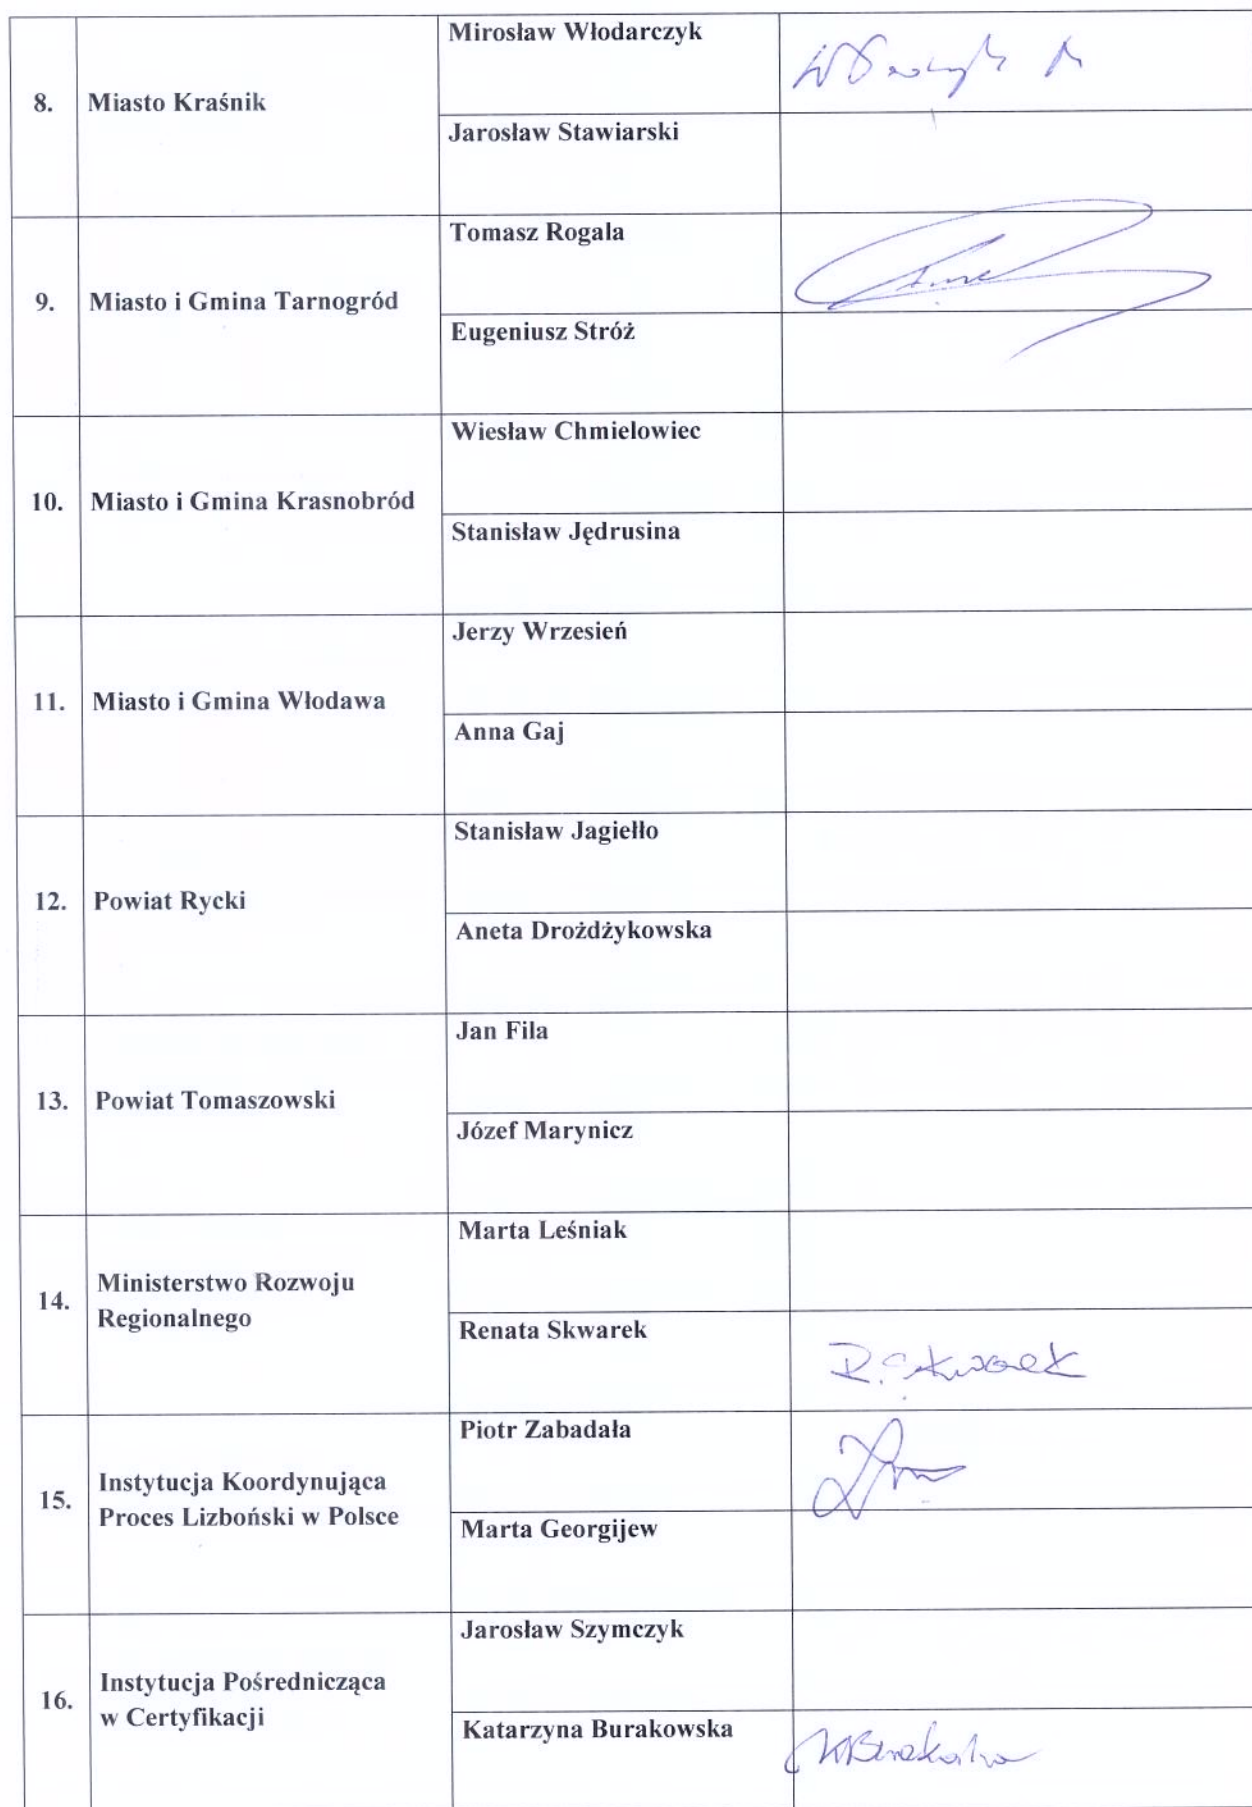 8. Miasto Kraśnik
Mirosław Włodarczyk
Jarosław Stawiarski
9. Miasto i Gmina Tarnogród
Tomasz Rogala
Eugeniusz Stróż
10. Miasto i Gmina Krasnobród
Wiesław Chmielowiec
Stanisław Jędrusina
11. Miasto i Gmina Włodawa
Jerzy Wrzesień
Anna Gaj
12. Powiat Rycki
Stanisław Jagiełło
Aneta Drożdżykowska
13. Powiat Tomaszowski
Jan Fila
Józef Marynicz
14. Ministerstwo Rozwoju
Regionalnego
Marta Leśniak
Renata Skwarek
R. Skwarek
15. Instytucja Koordynująca
Proces Lizboński w Polsce
Piotr Zabadała
Marta Georgijew
16. Instytucja Pośrednicząca
w Certyfikacji
Jarosław Szymczyk
Katarzyna Burakowska